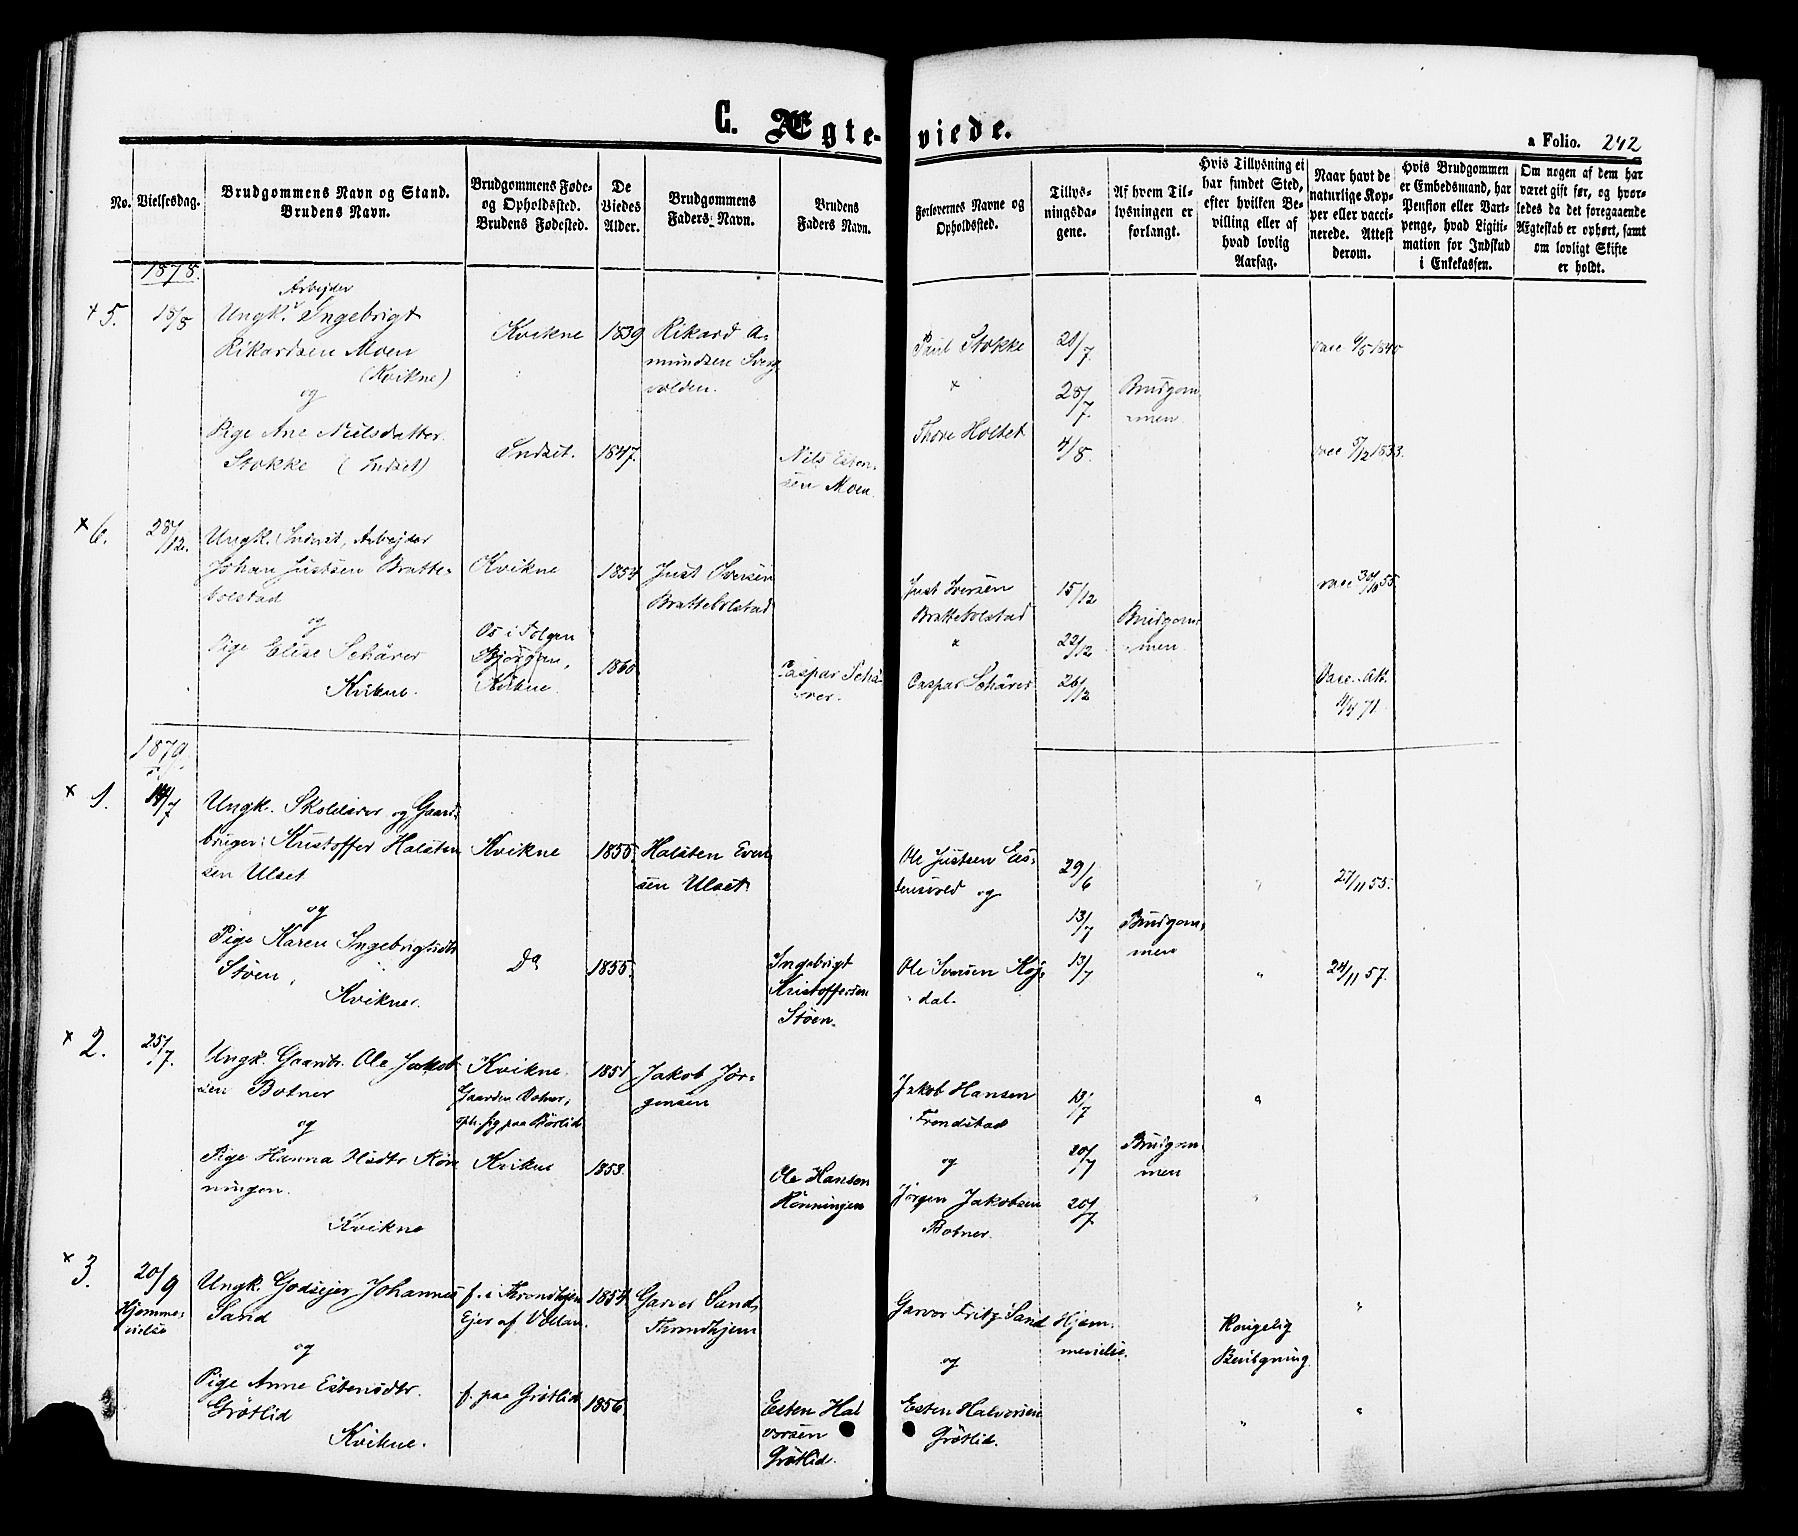 C. Ægte-viede.
a Folio. 242
No.
Vielsesdag.
Brudgommens Navn og Stand.
Brudens Navn.
Brudgommens Føde-
og Opholdssted.
Brudens Fødested.
De
Viedes
Alder.
Brudgommens
Faders Navn.
Brudens
Faders Navn.
Forlovernes Navne og
Opholdssted.
Tillys-
ningsda-
gene.
Af hvem Til-
lysningen er
forlangt.
Hvis Tillysning ei
har fundet Sted,
efter hvilken Be-
villing eller af
hvad lovlig
Aarsag.
Naar havt de
naturlige Kop-
per eller vacci-
nerede. Attest
derom.
Hvis Brudgommen
er Embedsmand, har
Pension eller Vart-
penge, hvad Ligiti-
mation for Indskud
i Enkekassen.
Om nogen af dem har
været gift før, og hvor-
ledes da det foregaaende
Ægteskab er ophørt, samt
om lovligt Skifte
er holdt.
1878.
+ 5.
15/8
Arbejder
Ungk. Ingebrigt
Rikardsen Moen
(Kvikne)
og
Pige Ane Nielsdatter
Stokke (Indset)
Kvikne
Indset.
1839
1847.
Rikard A-
mundsen
volden.
Nils Esten-
sen Moen.
Paul Stokke
Thore Holtet
28/7
4/8
Brudgom
men
x 6.
28/12.
Ungk. Indset, Arbejder
Johan Justsen Bratte-
bolstad
og
Pige Elise Schärer
Kvikne.
Kvikne
Os i Tolgen
Kvikne.
1854
1860
Just Iversen
Brattebolstad
Caspar Schä-
rer.
Just Iversen
Brattebolstad
Caspar Schärer
15/12
22/12
26/12
Brudgom
men
Vacc. Att.
1879.
x 1.
14/7
Ungk. Skolelærer og Gaard-
bruger: Kristoffer Halsten
sen Ulset
og
Pige Karen Ingebrigtsdtr
Støen,
Kvikne.
Kvikne
Do
1855.
1855.
Halsten Even
sen Ulset.
Ingebrigt
Kristoffersen
Støen.
Ole Justsen Es-
og
Ole Iversen
dal.
29/6
13/7
13/7
Brudgom-
men
27/11 55.
24/11 57.
x 2.
25/7.
Ungk. Gaardbr. Ole Jakob
sen Botner
og
Pige Hanna Olsdtr Røn
ningen.
Kvikne
Kvikne.
Gaarden Botner,
Kvikne
1851
1853.
Jakob Jør-
gensen
Ole Hansen
Rönningen
Jakob Hansen
Frondstad
og
Jørgen Jakobsen
Botner.
13/7
20/7
20/7.
Brudgom
men
x 3.
20/9
Hjemme-
vielse
Ungk. Godsejer Johannes
Sand
og
Pige Anne Estensdtr.
Grötlid
Kvikne.
f. i Trondhjem
Ejer af Vollan.
f. paa Grötlid
1854
1856.
Garver Sand,
Throndhjem
Esten Hal
vorsen
Grötlid.
Garver Fritz Sand
og
Esten Halvorsen
Grötlid.
Hjem-
mevielse.
Kongelig
Bevilgning.